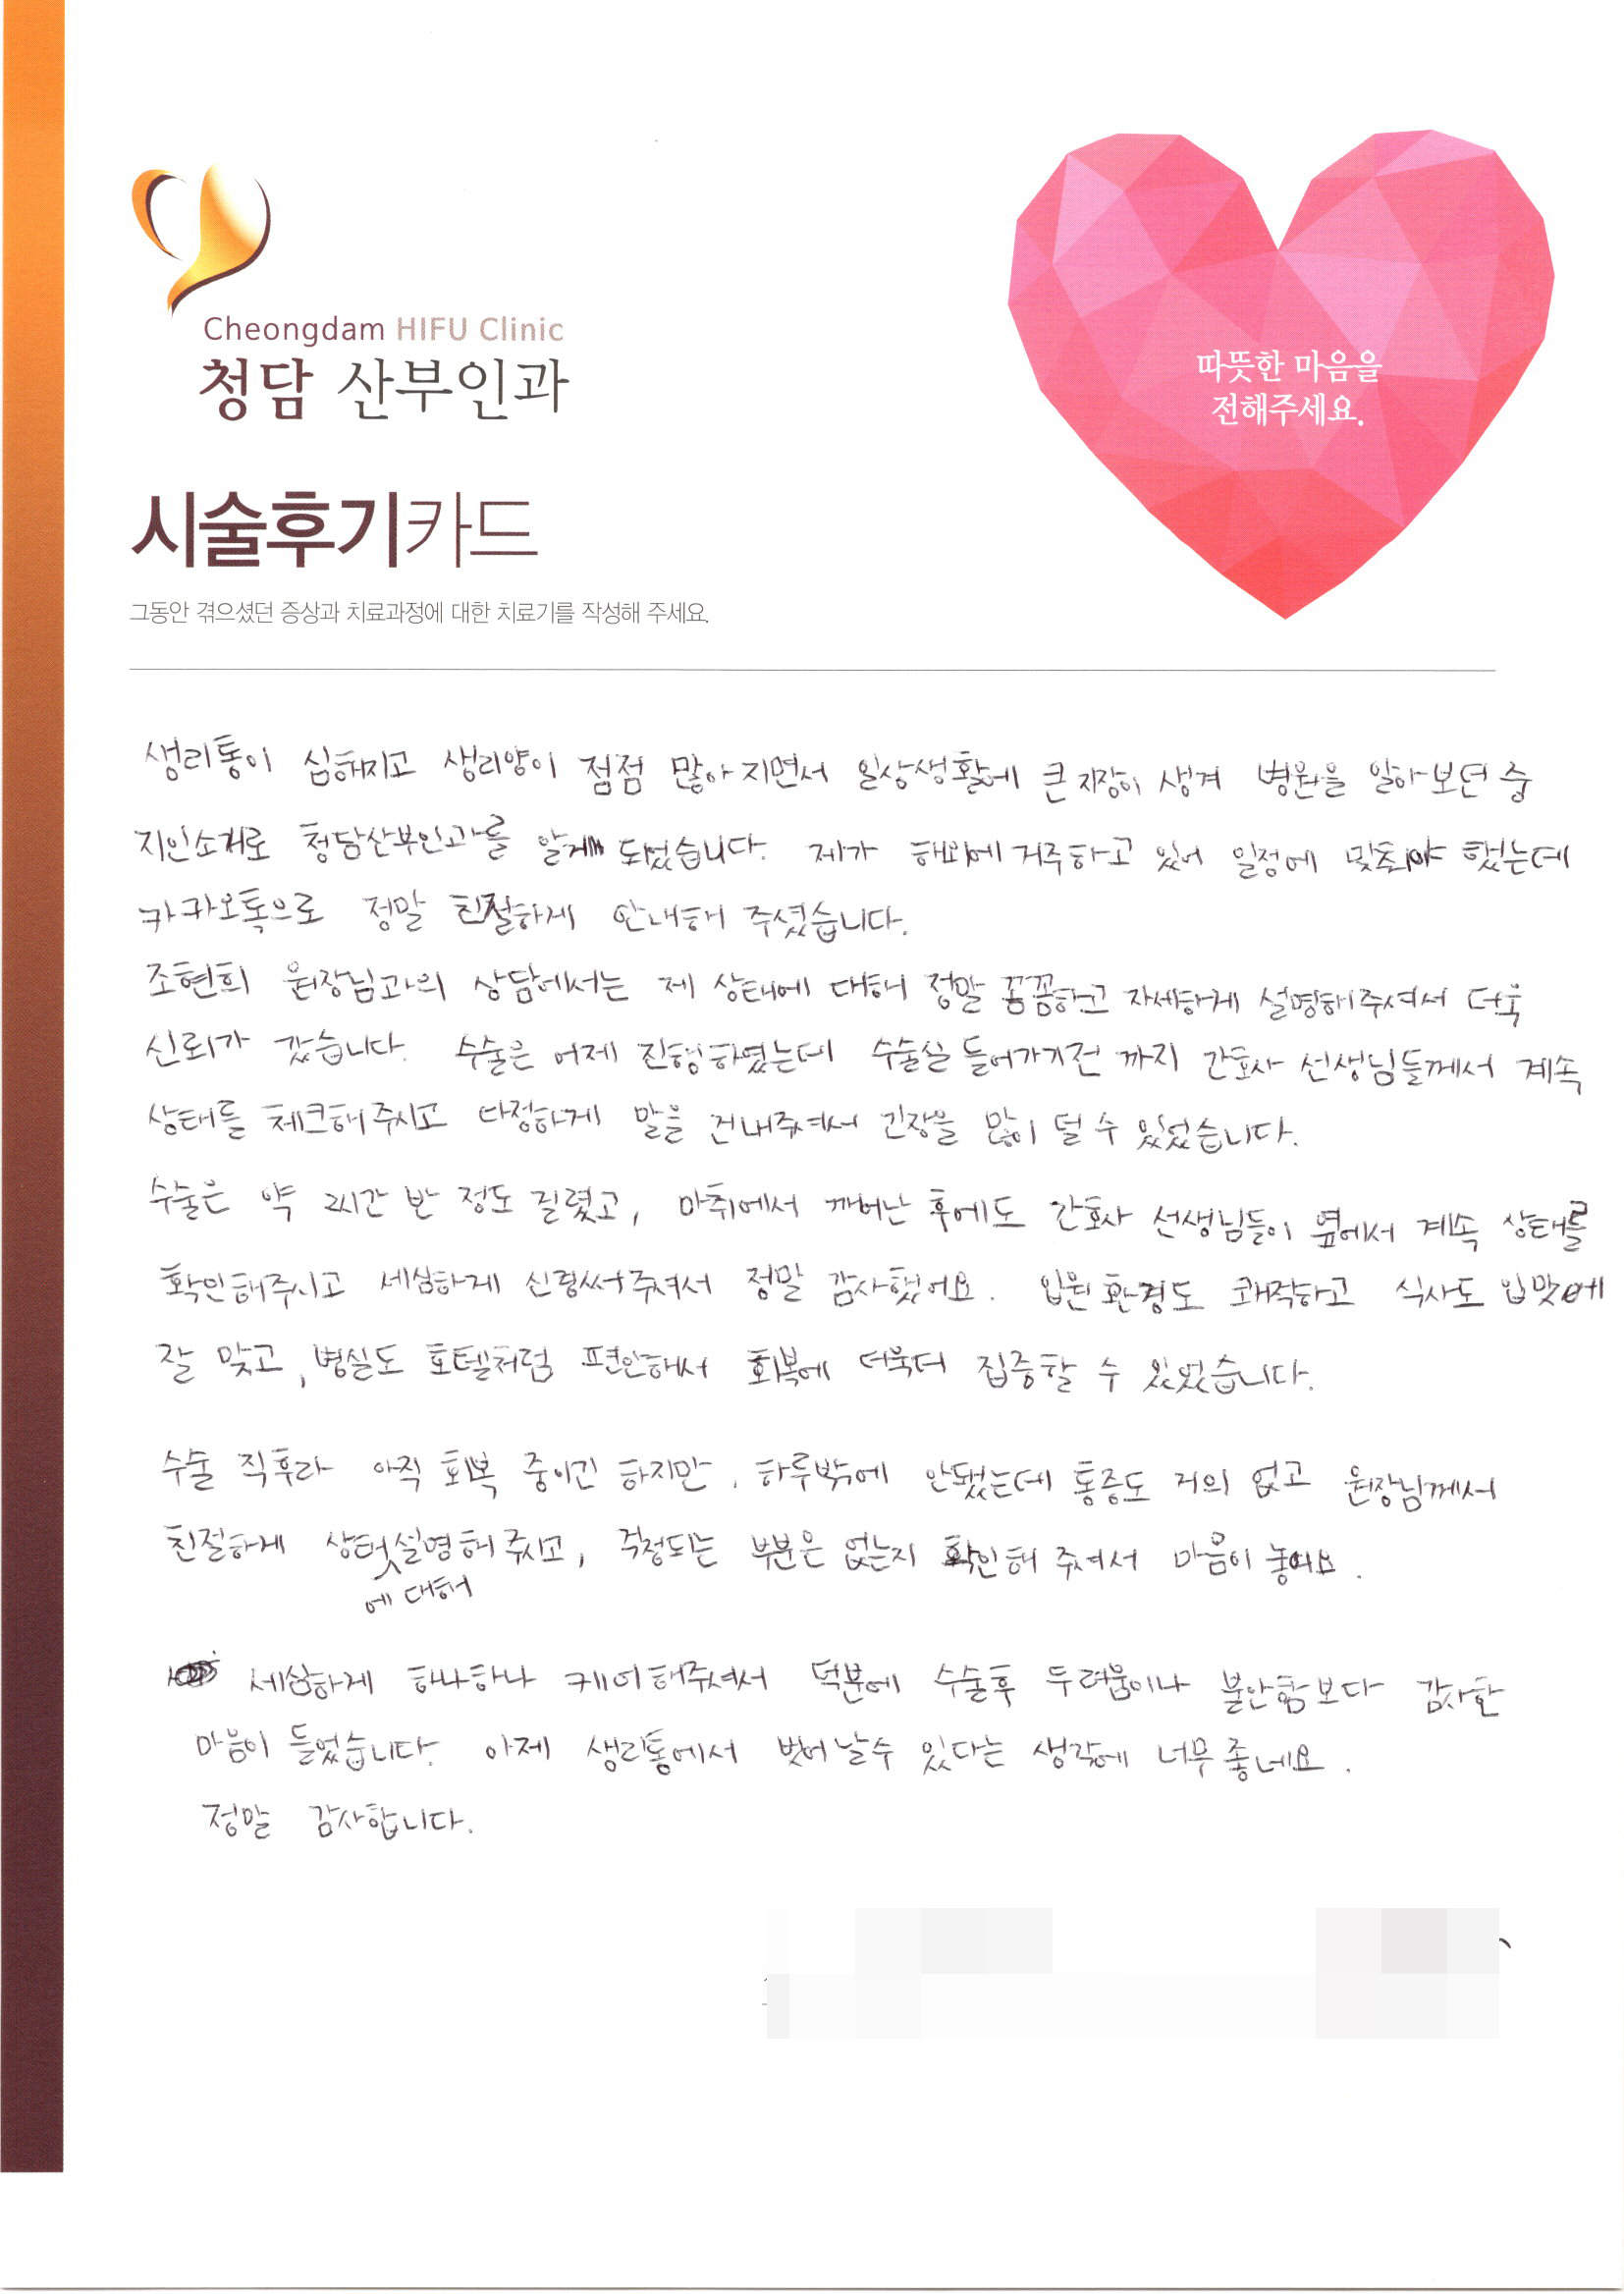 Cheongdam HIFU Clinic
청담 산부인과
따뜻한 마음을
전해주세요.
시술후기카드
그동안 겪으셨던 증상과 치료과정에 대한 치료기를 작성해 주세요.
생리통이 심해지고 생리양이 점점 많아지면서 일상생활에 큰 지장이 생겨 병원을 알아보던 중
지인소개로 청담산부인과를 알게 되었습니다. 제가 해외에 거주하고 있어 일정에 맞춰야 했는데
카카오톡으로 정말 친절하게 안내해 주셨습니다.
조현희 원장님과의 상담에서는 제 상태에 대해 정말 꼼꼼하고 자세하게 설명해주셔서 더욱
신뢰가 갔습니다. 수술은 어제 진행하였는데 수술실 들어가기전 까지 간호사 선생님들께서 계속
상태를 체크해주시고 다정하게 말을 건내주셔서 긴장을 많이 덜 수 있었습니다.
수술은 약 2시간 반 정도 걸렸고, 마취에서 깨어난 후에도 간호사 선생님들이 옆에서 계속 상태를
확인해주시고 세심하게 신경써주셔서 정말 감사했어요. 입원환경도 쾌적하고 식사도 입맛에
잘 맞고, 병실도 호텔처럼 편안해서 회복에 더욱더 집중할 수 있었습니다.
수술 직후라 아직 회복 중이긴 하지만, 하루밖에 안됐는데 통증도 거의 없고 원장님께서
친절하게 상태에 대해 설명해 주시고, 걱정되는 부분은 없는지 확인해 주셔서 마음이 놓여요.
세심하게 하나하나 케어해주셔서 덕분에 수술후 두려움이나 불안함보다 감사한
마음이 들었습니다. 이제 생리통에서 벗어날수 있다는 생각에 너무 좋네요.
정말 감사합니다.